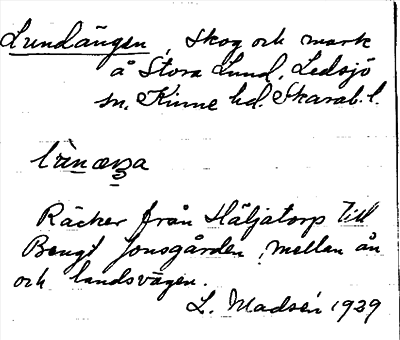 Lundängen, skog och mark
å Stora Lund, Ledsjö
sn. Kinne hd. Skarab. l.
Räcker från Häljatorp till
Bengt Jonsgården, mellan ån
och landsvägen.
L. Madsén 1929